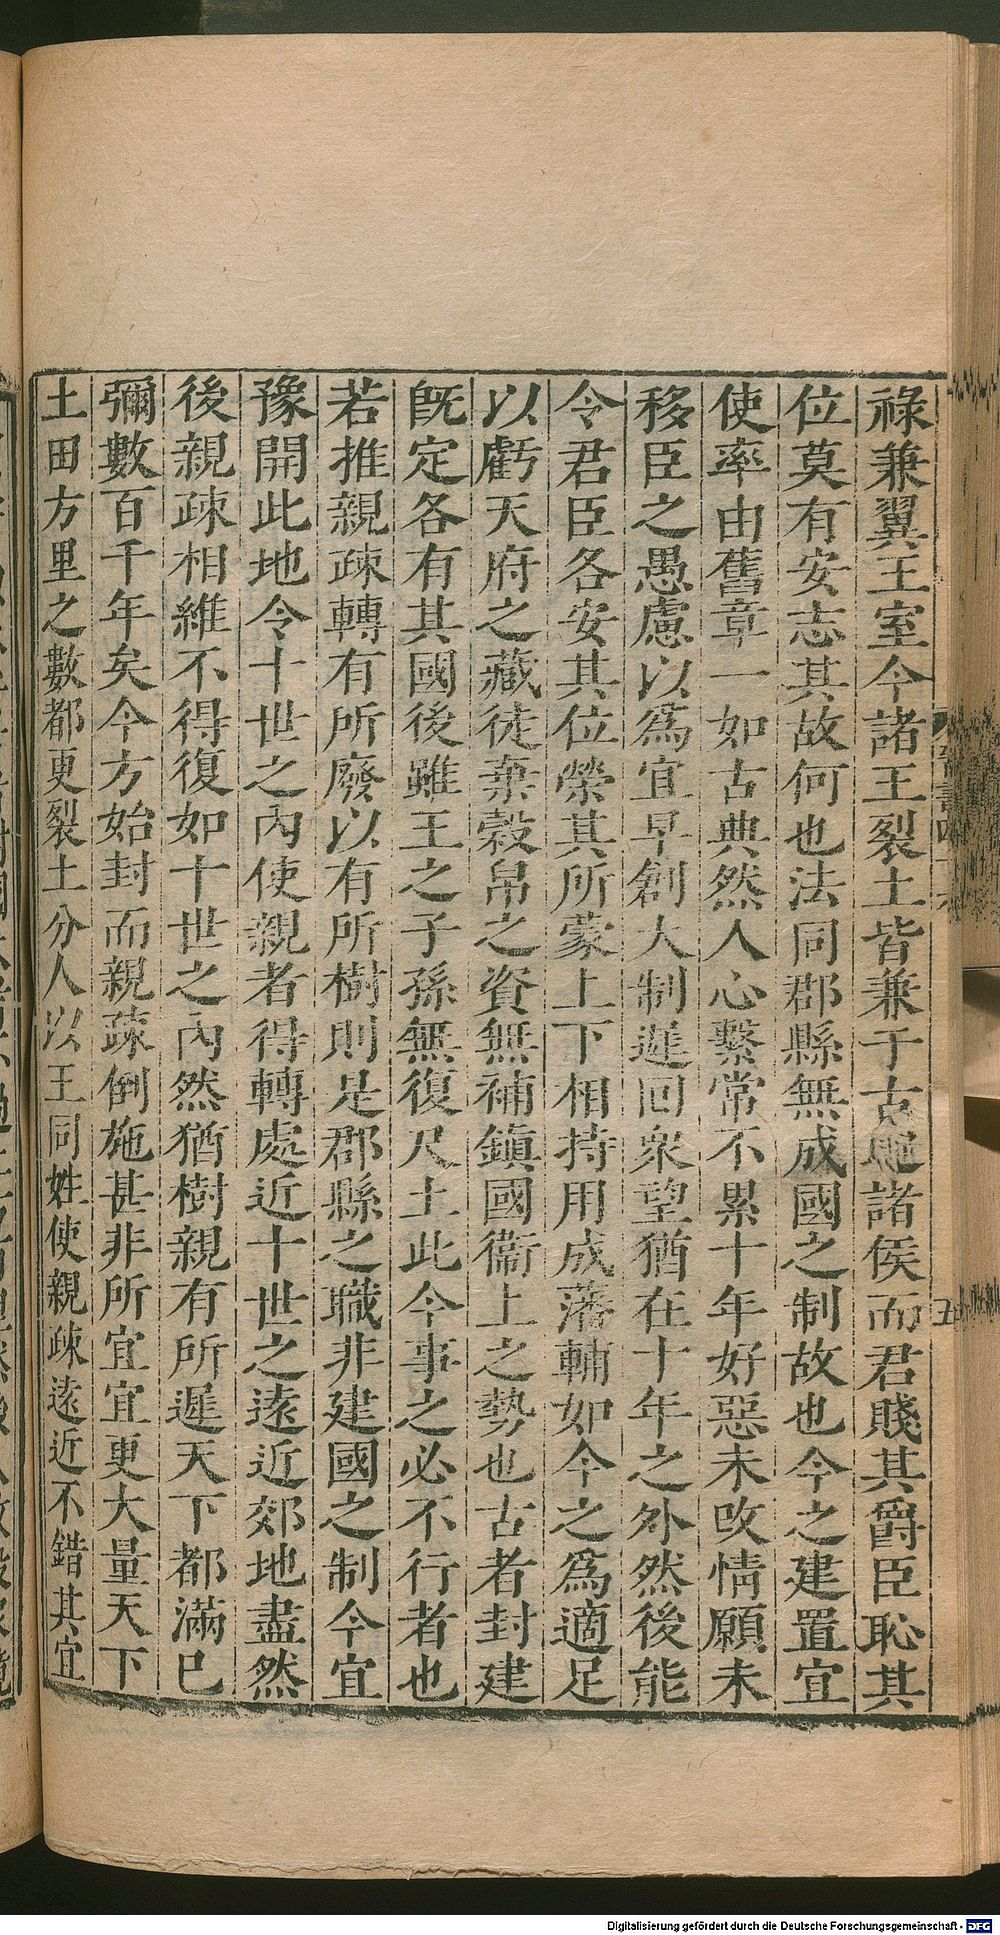 祿兼翼王室今諸王裂土皆兼于古諸侯而君賤其爵臣恥其
位莫有安志其故何也法同郡縣無成國之制故也今之建置宜
使率由舊章一如古典然人心繫常不累十年好惡未改情願未
移臣之愚慮以爲宜早創大制遲回衆望猶在十年之外然後能
令君臣各安其位榮其所蒙上下相持用成藩輔如今之爲適足
以虧天府之藏徒棄穀帛之資無補鎮國衞上之勢也古者封建
旣定各有其國後雖王之子孫無復尺土此今事之必不行者也
若推親疎轉有所廢以有所樹則是郡縣之職非建國之制今宜
豫開此地令十世之內使親者得轉處近十世之遠近郊地盡然
後親疎相維不得復如十世之內然猶樹親有所遲天下都滿已
彌數百千年矣今方始封而親疎倒施甚非所宜宜更大量天下
土田方里之數都更裂土分人以王同姓使親疎遠近不錯其宜
五
Digitalisierung gefördert durch die Deutsche Forschungsgemeinschaft - DFG